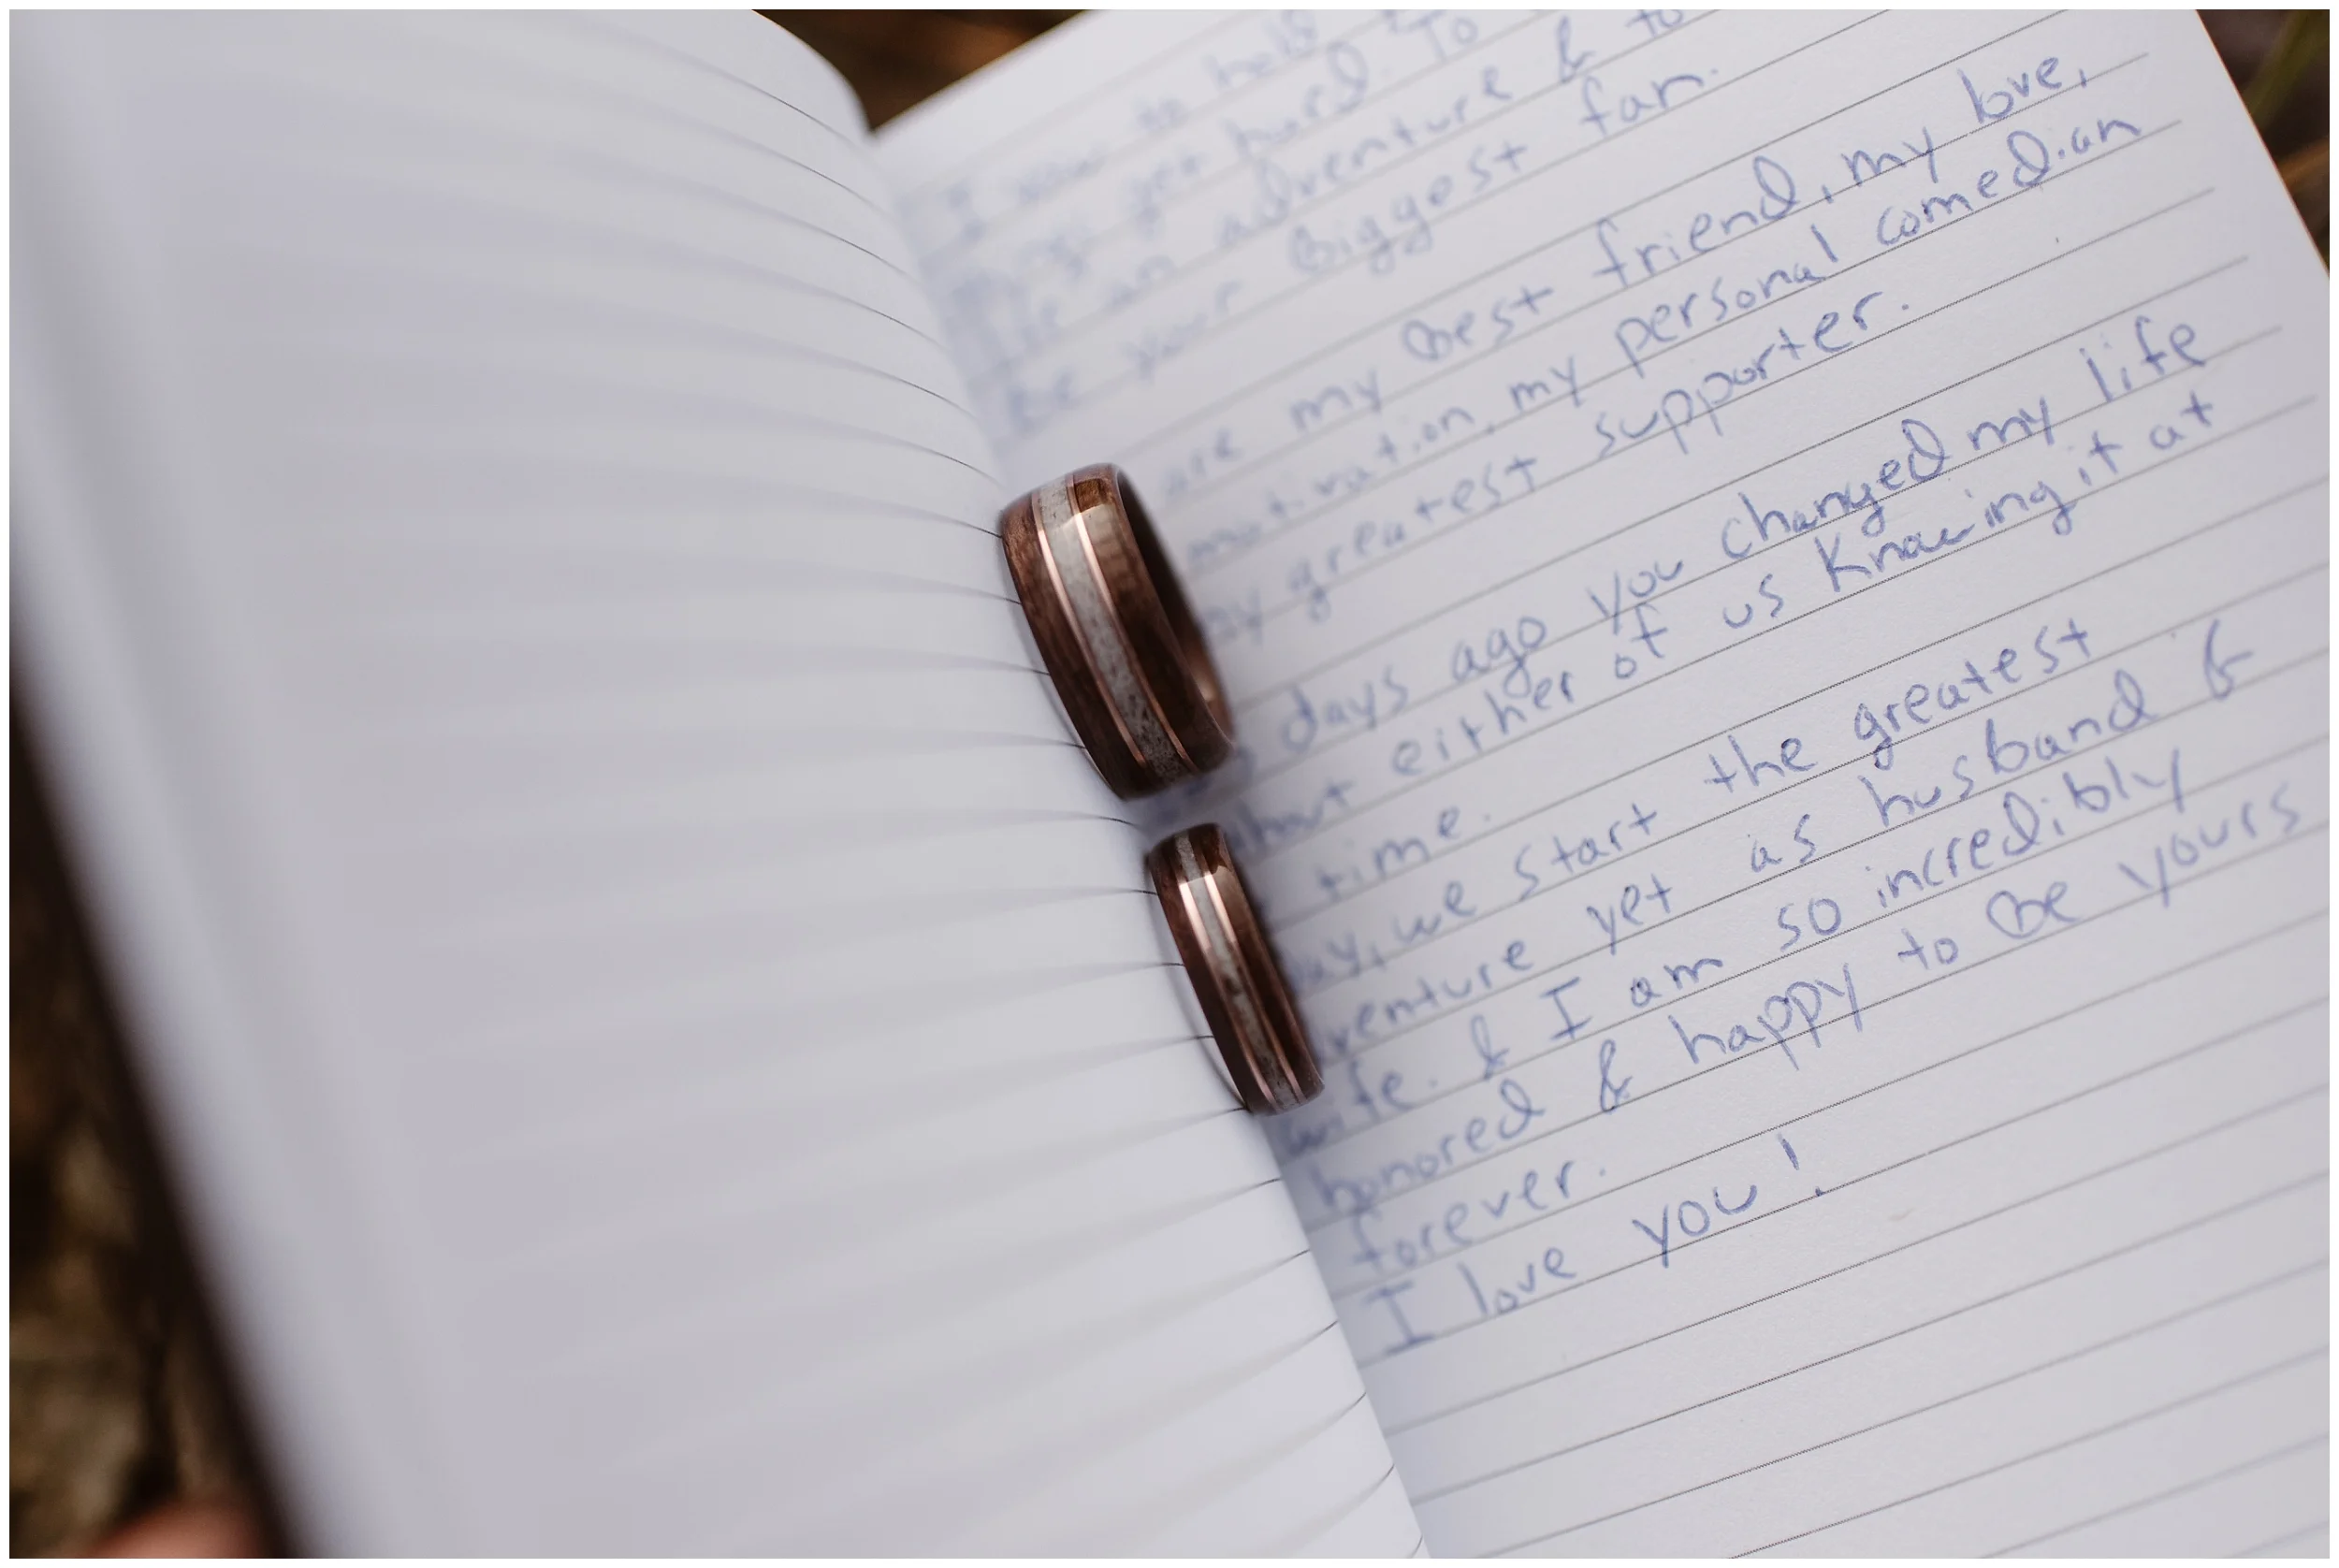 I vow to hold
get hurt. To
life an adventure & to
be your biggest fan.
are my best friend, my love,
motivation, my personal comedian
my greatest supporter.
days ago you changed my life
without either of us knowing it at
time.
we start the greatest
adventure yet as husband &
wife. & I am so incredibly
honored & happy to be yours
forever.
I love you!